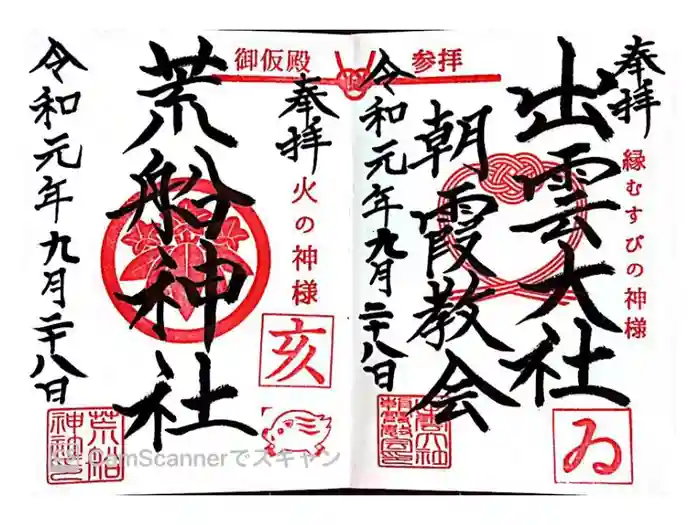 奉拝
縁むすびの神様
出雲大社
朝霞教会
令和元年九月二十八日
ゐ
御仮殿
参拝
奉拝
火の神様
亥
荒船神社
令和元年九月二十八日
CamScannerでスキャン